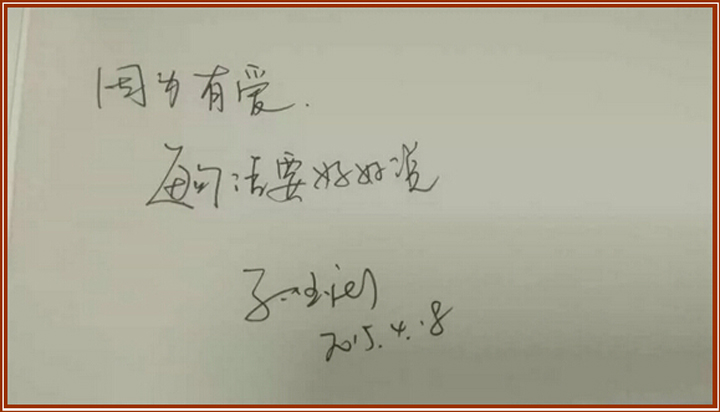 因为有爱.
每句话要好好说
2015.4.8